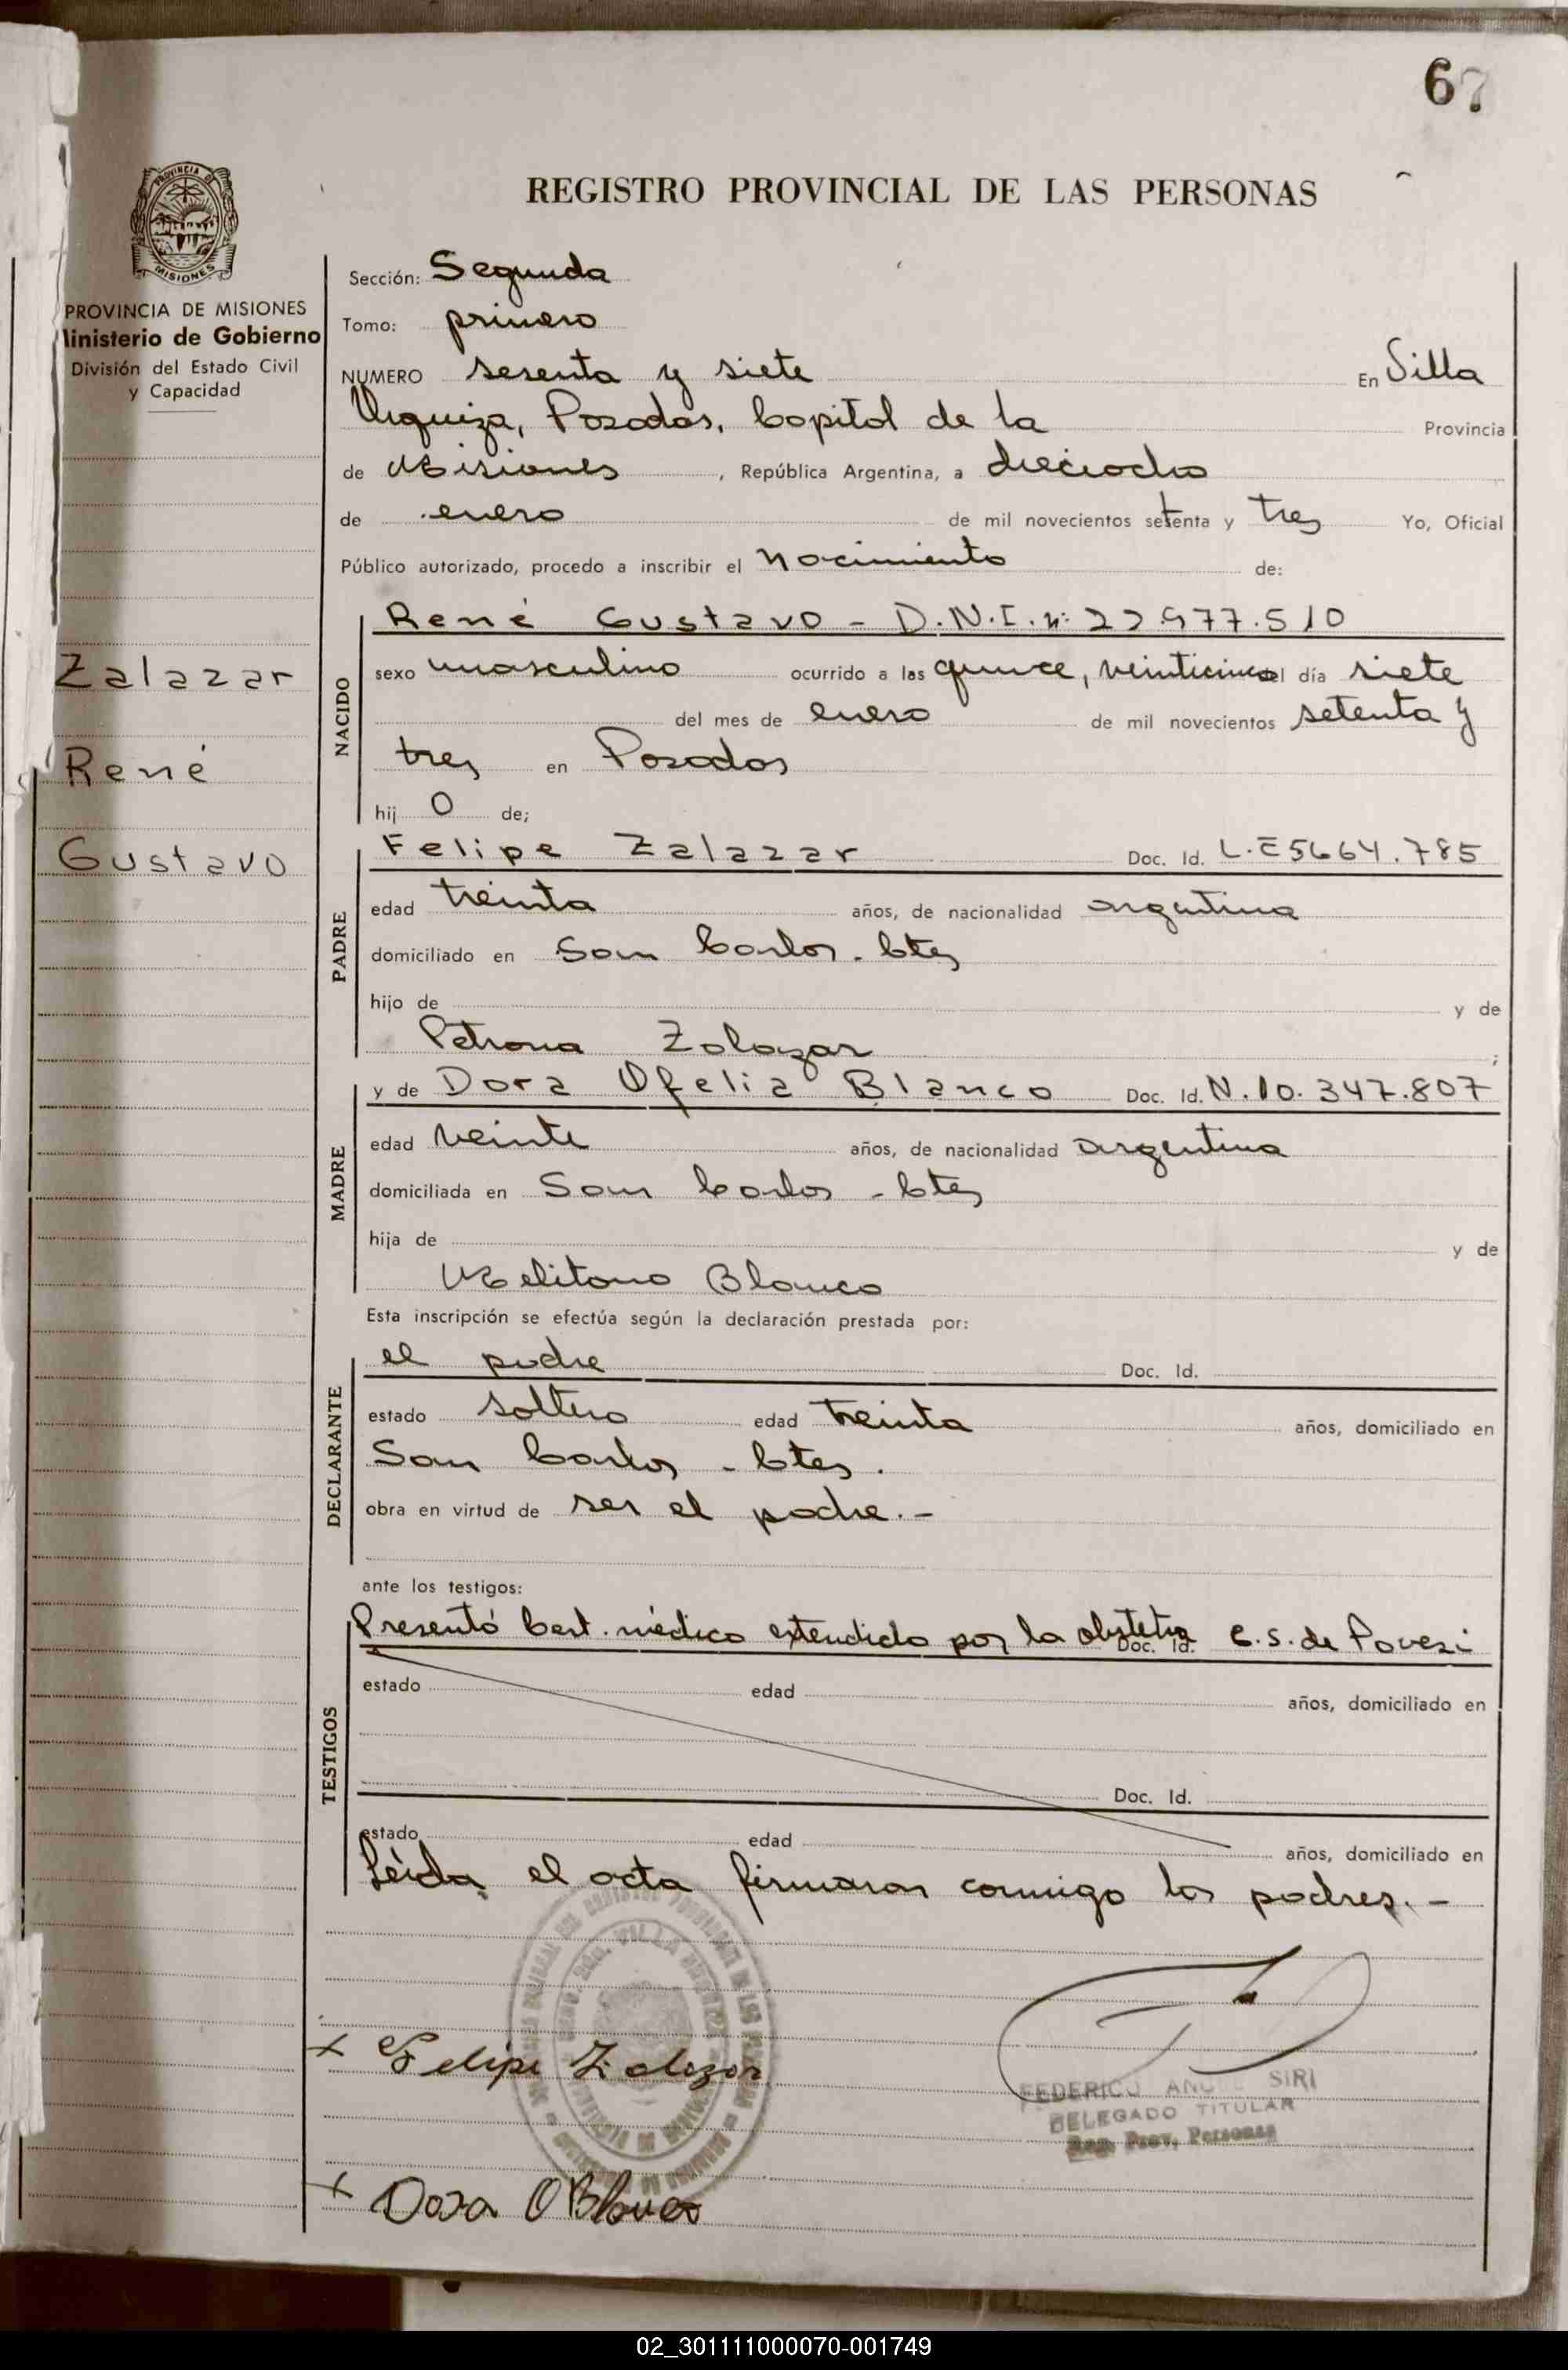 67
REGISTRO PROVINCIAL DE LAS PERSONAS
PROVINCIA DE MISIONES
Ministerio de Gobierno
División del Estado Civil
y Capacidad
Zalazar
René
Gustavo
Sección: Segunda
Tomo: primero
NUMERO sesenta y siete En Villa
Urquiza, Posadas, Capital de la Provincia
de Misiones, República Argentina, a dieciocho
de enero de mil novecientos setenta y tres Yo, Oficial
Público autorizado, procedo a inscribir el Nacimiento de:
NACIDO
René Gustavo - D.N.I. nº: 22.977.510
sexo masculino ocurrido a las quince, veinticinco el día siete
del mes de enero de mil novecientos setenta y
tres en Posadas
hij o de;
PADRE
Felipe Zalazar Doc. Id. L.E 5664.785
edad treinta años, de nacionalidad argentina
domiciliado en San Carlos - Ctes
hijo de y de
Petrona Zalazar ;
MADRE
y de Dora Ofelia Blanco Doc. Id. N. 10.347.807
edad veinte años, de nacionalidad argentina
domiciliada en San Carlos - Ctes
hija de y de
Melitona Blanco
Esta inscripción se efectúa según la declaración prestada por:
DECLARANTE
el padre Doc. Id.
estado soltero edad treinta años, domiciliado en
San Carlos - Ctes.
obra en virtud de ser el padre.-
ante los testigos:
TESTIGOS
Presentó Cert. médico extendido por la obstetra Doc. Id. C.S. de Povesi
estado edad años, domiciliado en
Doc. Id.
estado edad años, domiciliado en
Leída el acta firmaron conmigo los padres.-
x Felipe Zalazar
FEDERICO ANGEL SIRI
DELEGADO TITULAR
Reg. Prov. Personas
x Dora O Blanco
02_301111000070-001749